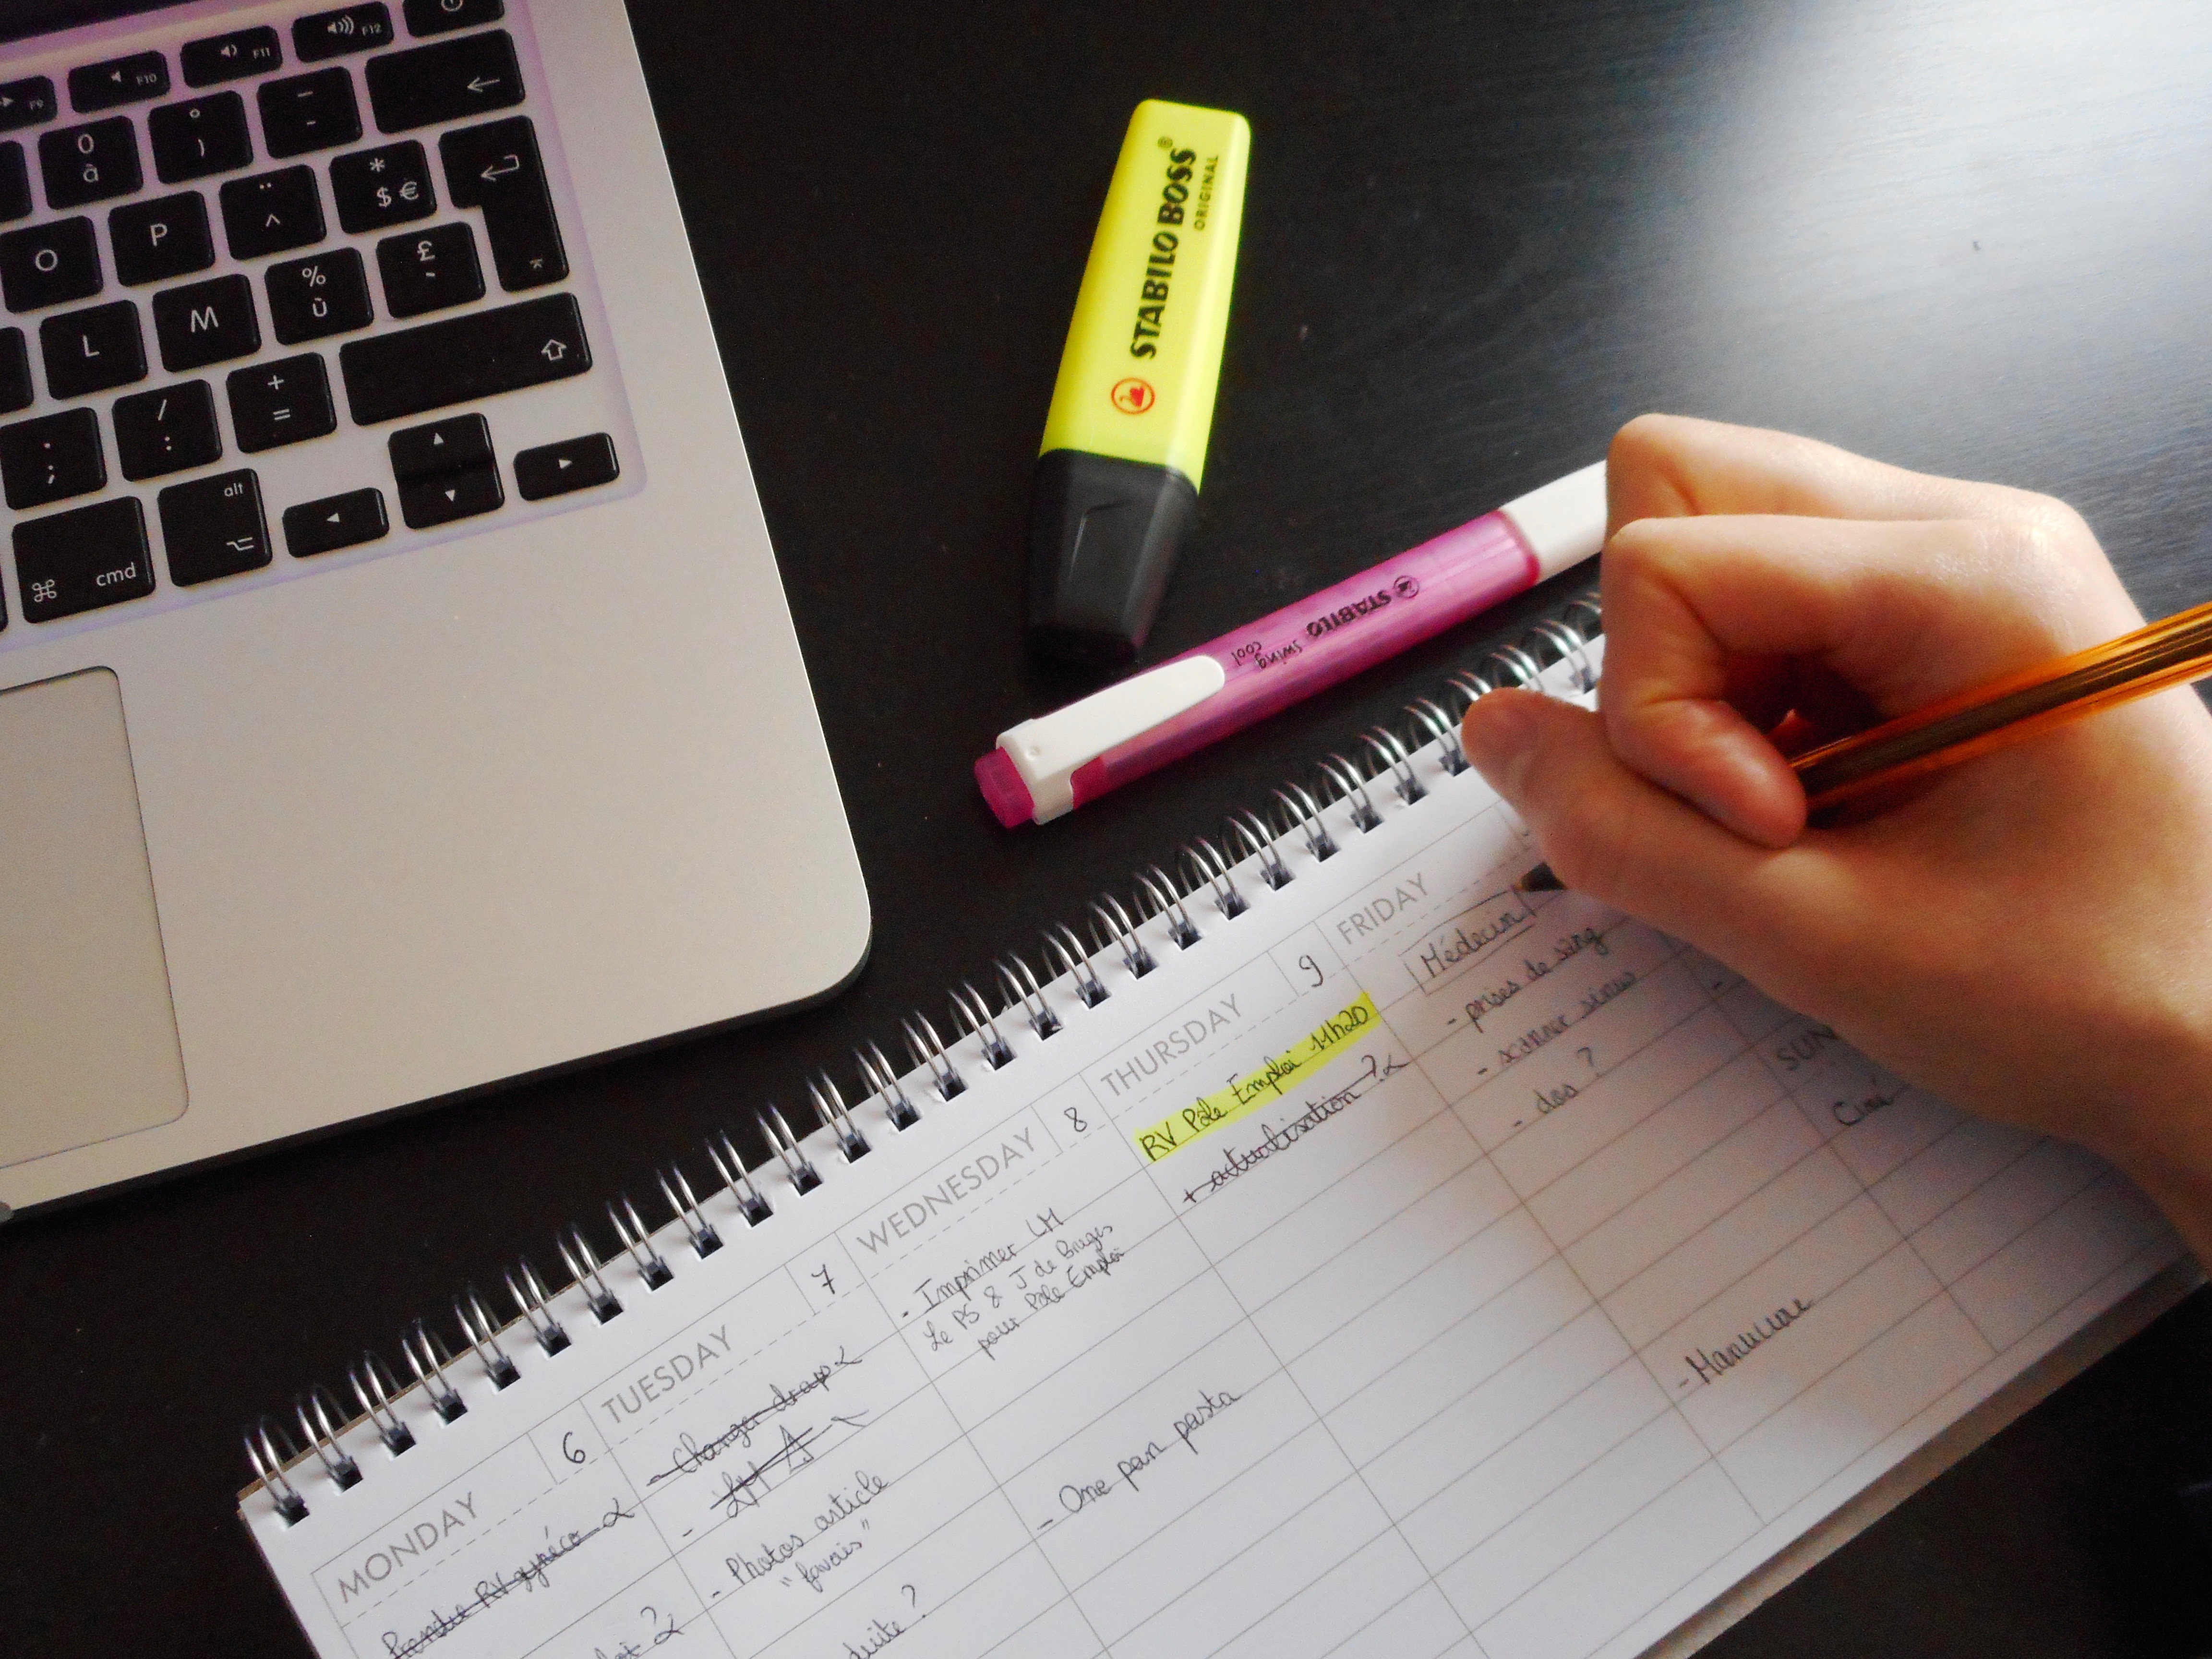 F9
F10
F11
F12
0
à
°
)
_
-
O
P
¨
^
*
$ €
L
M
%
ù
£
`
.
;
/
:
+
=
alt
cmd
STABILO BOSS®
ORIGINAL
STABILO
swing
cool
MONDAY
6
Prendre RV gynéco
?
TUESDAY
7
- Changer draps
- LM
- Photos article
"favoris"
?
WEDNESDAY
8
- Imprimer LM
Le PS & J de Bruges
pour Pôle Emploi
- One pan pasta
THURSDAY
9
RV Pôle Emploi 11h20
+ actualisation ?
FRIDAY
Médecin
- prises de sang
- scanner sinus
- dos ?
- Manucure
SUN
Ciné